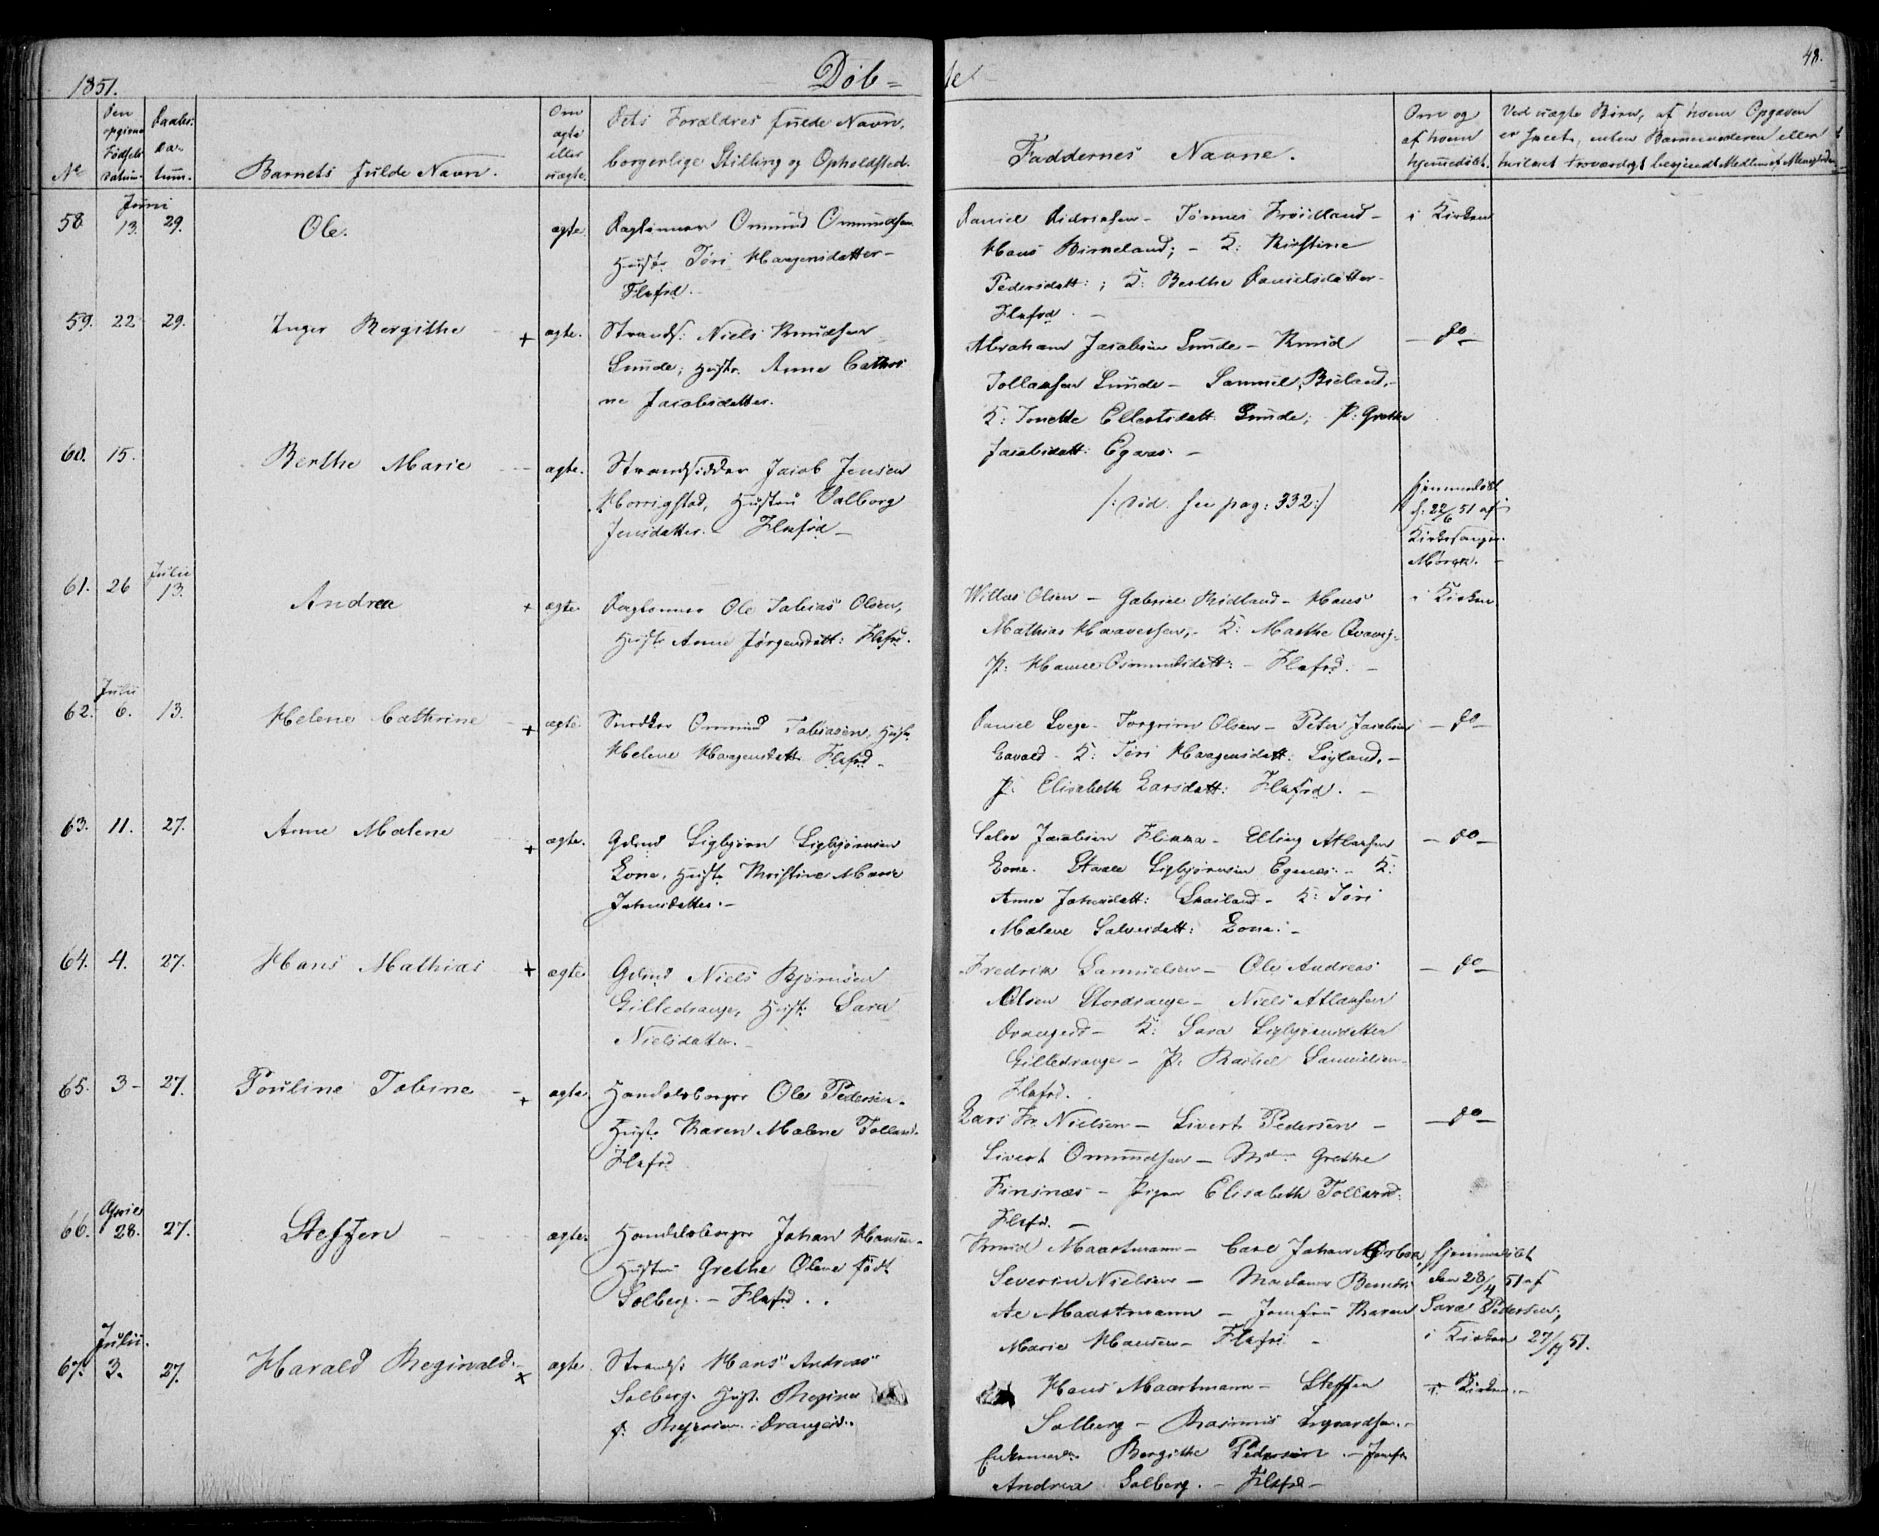 1851.
Døb-
te
48.
No
Den opgivne Fødsels datum.
Daabs Da- tum.
Barnets fulde Navn.
Om ægte eller uægte.
Dets Forældres fulde Navn,
borgerlige Stilling og Opholdsted.
Faddernes Navne.
Om og af hvem hjemmedøbt.
Ved uægte Børn, af hvem Opgaven
er skeet, enten Barnemoderen eller
Juni
58. 13. 29. Ole. ægte.
Daglønner Ommund Ommundsen
Hustr. Tøri Haagensdatter-
Flefrd.
Daniel Didriksen - Tønnes Frøidland -
Hans Birkeland; - K: Kirstine
Pedersdatt: ; K: Berthe Danielsdatter-
Flefrd. -
i Kirken
59. 22 29. Inger Bergithe + ægte.
Strands: Niels Knudsen
Sunde; Hustr. Anne Cathri
ne Jacobsdatter.
Abraham Jacobsen Sunde - Knud
Tollaksen Sunde - Samuel Bieland, -
K: Tonette Ellertsdatt. Sunde; P: Grethe
Jacobsdatt: Egenæs. -
- do -
60. 15. Berthe Marie - ægte.
Strandsidder Jacob Jensen
Horrigstad, Hustru Valborg
Jensdatter. Flefrd -
/: vid. pag: 332:/
hjemmedøbt
d: 22/6 51 af
Kirkesanger
Mørch. -
Julii
61. 26 13. Andrea + ægte
Daglønner Ole Tobias Olsen,
Hustr. Anne Jørgensdatt: Flefrd.
Willas Olsen - Gabriel Midland - Hans
Mathias Haaversen; K: Marthe Qvavig -
P: Hanne Osmundsdatt: - Flefrd. -
i Kirken
Julii
62. 6. 13. Helene Cathrine - + ægte
Snedker Ommund Tobiasen, Hust.
Helene Haagensdatt: Flefrd -
Daniel Loge - Torgrim Olsen - Peter Jacobsen
Lavold - K: Tøri Haagensdatt: Løyland, -
P: Elisabeth Larsdatt: Flefrd. -
- do -
63. 11. 27. Anne Malene + ægte.
Gdmd Sigbjørn Sigbjørnsen
Lone, Hustr. Kristine Marie
Johnsdatter. -
Salve Jacobsen Flikka - Elling Atlaksen
Lone. Staale Sigbjørnsen Egenæs: - K:
Anne Johnsdatt: Skailand - K: Tøri
Malene Salvesdatt: Lone: -
- do -
64. 4. 27. Hans Mathias + ægte.
Gdmd Niels Bjørnsen
Gilledrange, Hustr. Sara
Nielsdatter. -
Fredrik Samuelsen - Ole Andreas
Nilsen Stordrange - Niels Atlaksen
Drangeid - K: Sara Sigbjørnsdatter
Gilledrange - P. Rachel Samuelsen -
Flefrd.
- do -
65. 3 - 27. Pouline Tobine - + ægte.
Handelsborger Ole Pedersen -
Hustr. Karen Malene Tolland.
Flefrd
Lars Fr. Nielsen - Sivert Pedersen -
Sivert Ommundsen - Md. Grethe
Finsnæs - Pigen Elisabeth Tolland:
Flefrd. -
- do -
April
66. 28. 27. Steffen - ægte.
Handelsborger Johan Hansen -
Hustru Grethe Olene født
Solberg. - Flefrd . .
Knud Maartmann - Carl Johan
Severin Nielsen - Madame Benedic
te Maartmann - Jomfru Karen
Marie Hansen - Flefrd. -
hjemmedøbt
den 28/4 51 af
Sara Pedersen;
i Kirken 27/7 51.
Julii.
67. 3. 27. Harald Reginvald. - x ægte.
Strands: Hans Andreas
Solberg. Hust. Regine
f. Drangeid.
Hans Maartmann - Steffen
Solberg - Rasmus
Enkemad. Bergithe Pedersen - Jomfr.
Andrea Solberg. - Flefrd -
i Kirken. -